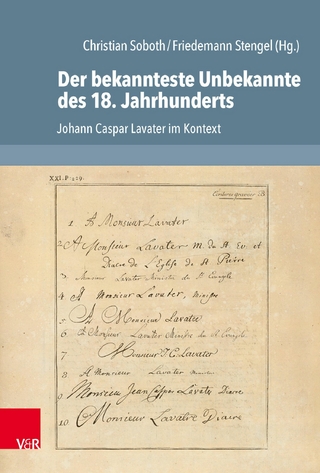 Christian Soboth/Friedemann Stengel (Hg.)
Der bekannteste Unbekannte
des 18. Jahrhunderts
Johann Caspar Lavater im Kontext
XXI. P. 219.
1 A Monsieur Lavater
2 A Monsieur Lavater m. du St. Ev. et
Diacre de L'Eglise de St Pierre
3. Monsieur Lavater Ministre du St. Evangile
4. A Monsieur Lavater, Ministre
5 A Monsieur Lavater
6 A Monsieur Lavater Ministre du St Evangile
7 Monsieur J C. Lavater
8 A Monsieur Lavater
9 Monsieur Jean Caspar Lavater Diacre
10 Monsieur Lavatre Diacre
V&R